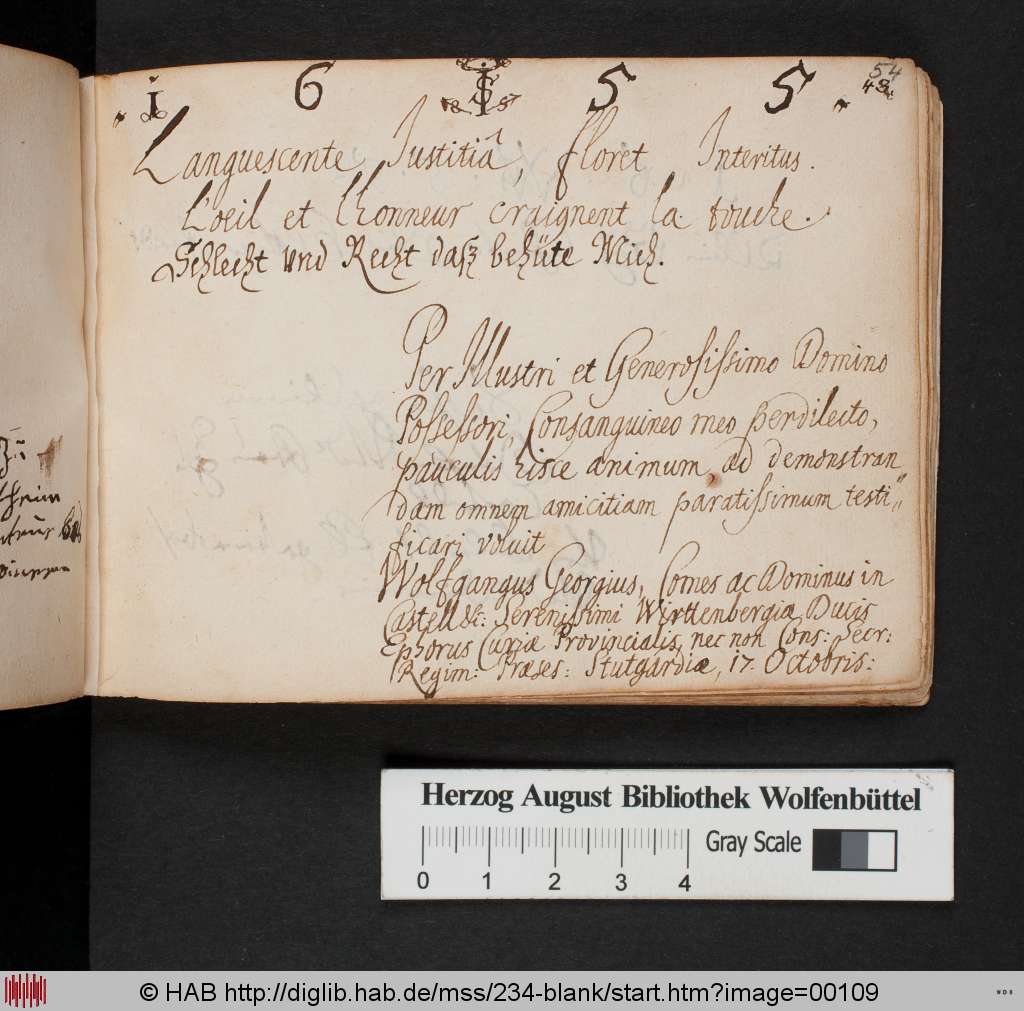 1 6 5 5.
54
43
Languescente Justitiâ, floret Interitus.
L'oeil et l'honneur craignent la touche.
Schlecht und Recht daß behüte Mich.
Per Illustri et Generosissimo Domino
Possessori, Consanguineo meo perdilecto,
pauculis hisce animum, ad demonstran
dam omnem amicitiam paratissimum testi-
ficari voluit
Wolfgangus Georgius, Comes ac Dominus in
Castell &c: Serenissimi Wirttenbergiæ Ducis
Ephorus Curiæ Provincialis, nec non Cons: Secr:
Regim: Præses: Stutgardiæ, 17. Octobris:
Herzog August Bibliothek Wolfenbüttel
Gray Scale
0 1 2 3 4
© HAB http://diglib.hab.de/mss/234-blank/start.htm?image=00109